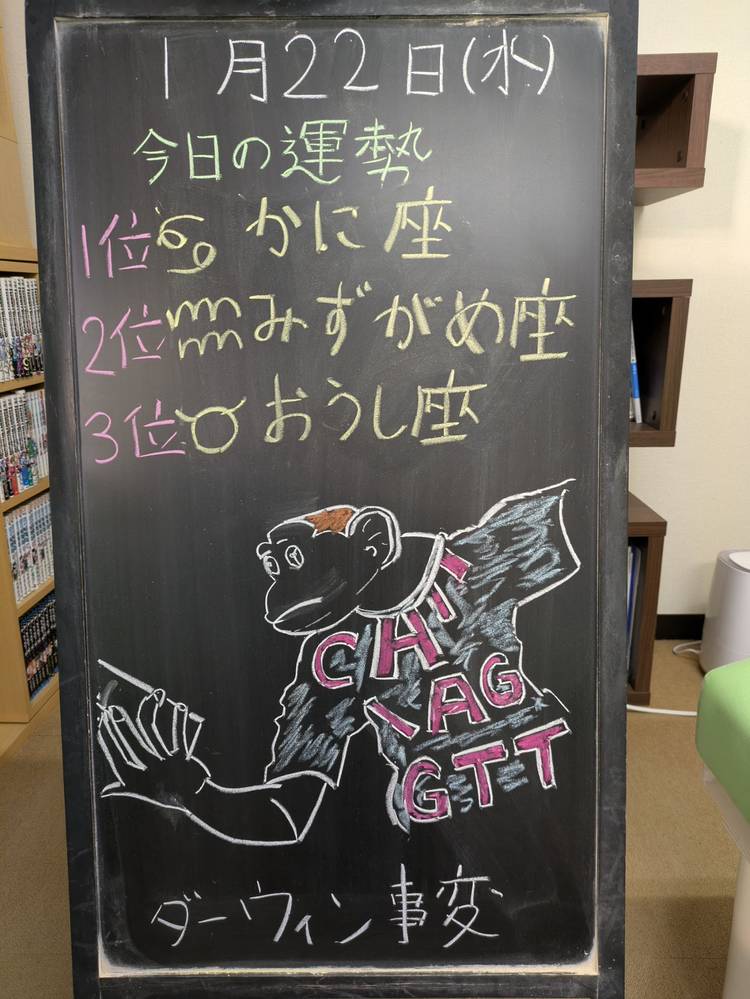 1月22日(水)
今日の運勢
1位♋かに座
2位♒みずがめ座
3位♉おうし座
CHI
AG
GTT
ダーウィン事変